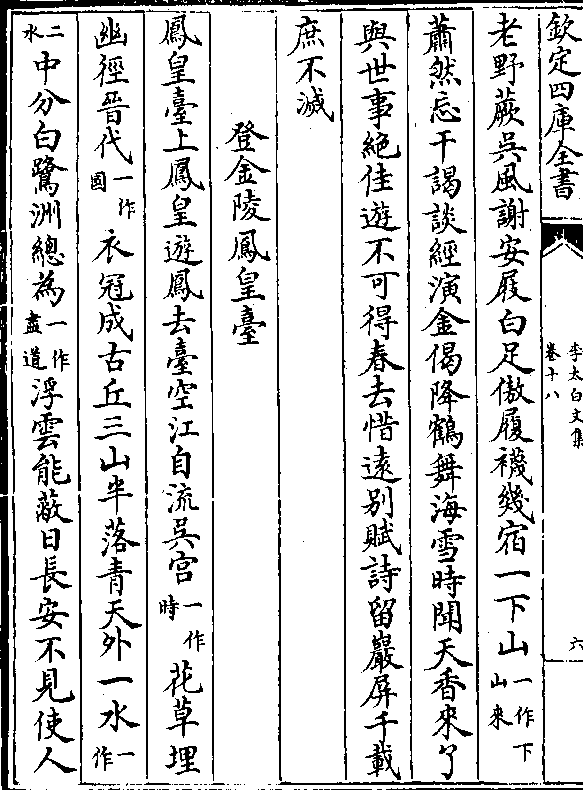 欽定四庫全書
李太白文集
卷十八
六
老野蕨吳風謝安屐白足傲履襪幾宿一下山一作下山来
蕭然忘干謁談經演金偈降鶴舞海雪時聞天香來了
與世事絶佳遊不可得春去惜遠別賦詩留巖屏千載
庶不滅
登金陵鳳皇臺
鳳皇臺上鳳皇遊鳳去臺空江自流吳宫一作時花草埋
幽徑晉代一作國衣冠成古丘三山半落青天外一水一作
二水中分白鷺洲總為一作盡道浮雲能蔽日長安不見使人